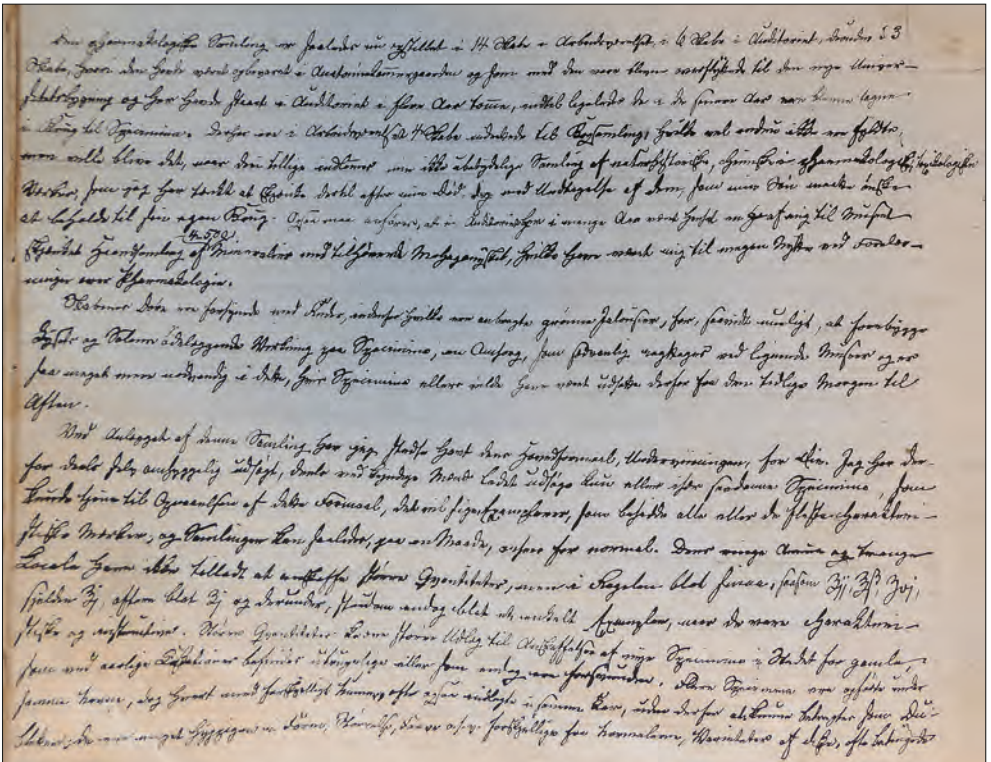 Den pharmakologiske Samling er saaledes nu opstillet i 14 Skabe i Arbeidsværelset, i 6 Skabe i Auditoriet, deraf 3
Skabe, hvori den havde været opbevaret i Anatomikammergaarden og som med den vare blevne overflyttede til den nye Univer-
sitetsbygning og her havde staaet i Auditoriet i flere Aar tomme, indtil ligeledes de i de senere Aar vare blevne tagne
i Brug til Specimina. Derhos ere i Arbeidsværelset 4 Skabe indrettede til Bogsamling, hvilke vel endnu ikke ere fyldte,
men ville blive det, naar der tillige indkommer min ikke ubetydelige Samling af naturhistoriske, chemiske, pharmakologiske, toxikologiske
Værker, som jeg har tænkt at skjænke dertil efter min Død, dog med Undtagelse af dem, som min Søn maatte ønske
at beholde til sin egen Brug. Ogsaa maa anføres, at i Auditoriet i mange Aar været henstillet en af mig til Museet
skjænket Haandsamling af (4-500) Mineralier med tilhørende Mahogniskab, hvilke have været mig til megen Nytte ved Forelæs-
ninger over Pharmakologie.
Skabenes Døre ere forsynede med Ruder, indenfor hvilke ere anbragte grønne Jalousier, for, saavidt muligt, at forebygge
Lysets og Solens ødelæggende Virkning paa Specimina, en Omsorg, som sædvanlig ved lignende Museer og er
saa meget mere nødvendig i dette, hvis Specimina ellers vilde have været udsatte derfor fra den tidlige Morgen til
Aften.
Ved Anlægget af denne Samling har jeg stedse havt dens Hovedformaal, Underviisningen, for Øie. Jeg har der-
for deels selv omhyggelig udsøgt, deels ved kyndige Mænd ladet udsøge kun eller især saadanne Specimina, som
kunde tjene til Opnaaelsen af dette Formaal, det vil sige Exemplarer, som besidde alle eller de fleste charakteri-
stiske Mærker, og Samlingen kan saaledes, paa en Maade, ansees for normal. Dens ringe Annum og trange
Locale have ikke tilladt at anskaffe større Qvantiteter, men i Regelen blot smaae, saasom
sjelden, oftere blot og derunder, stundom endog blot et enkelt Exemplar, naar de vare charakteri-
stiske og instructive. Større Qvantiteter kræve større Udlæg til Anskaffelsen af nye Specimina i Stedet for gamle,
som ved aarlige befindes utjenlige eller som endog ere forsvundne. Flere Specimina ere opførte under
samme Navn, dog hvert med forskjelligt Nummer, ofte ogsaa indlagte i samme Kar, uden derfor at kunne betragtes som Du-
bletter; de ere meget hyppigen i Form, Størrelse, Farve o.s.v. forskjellige fra Normalerne, Varieteter af disse, ofte betingede